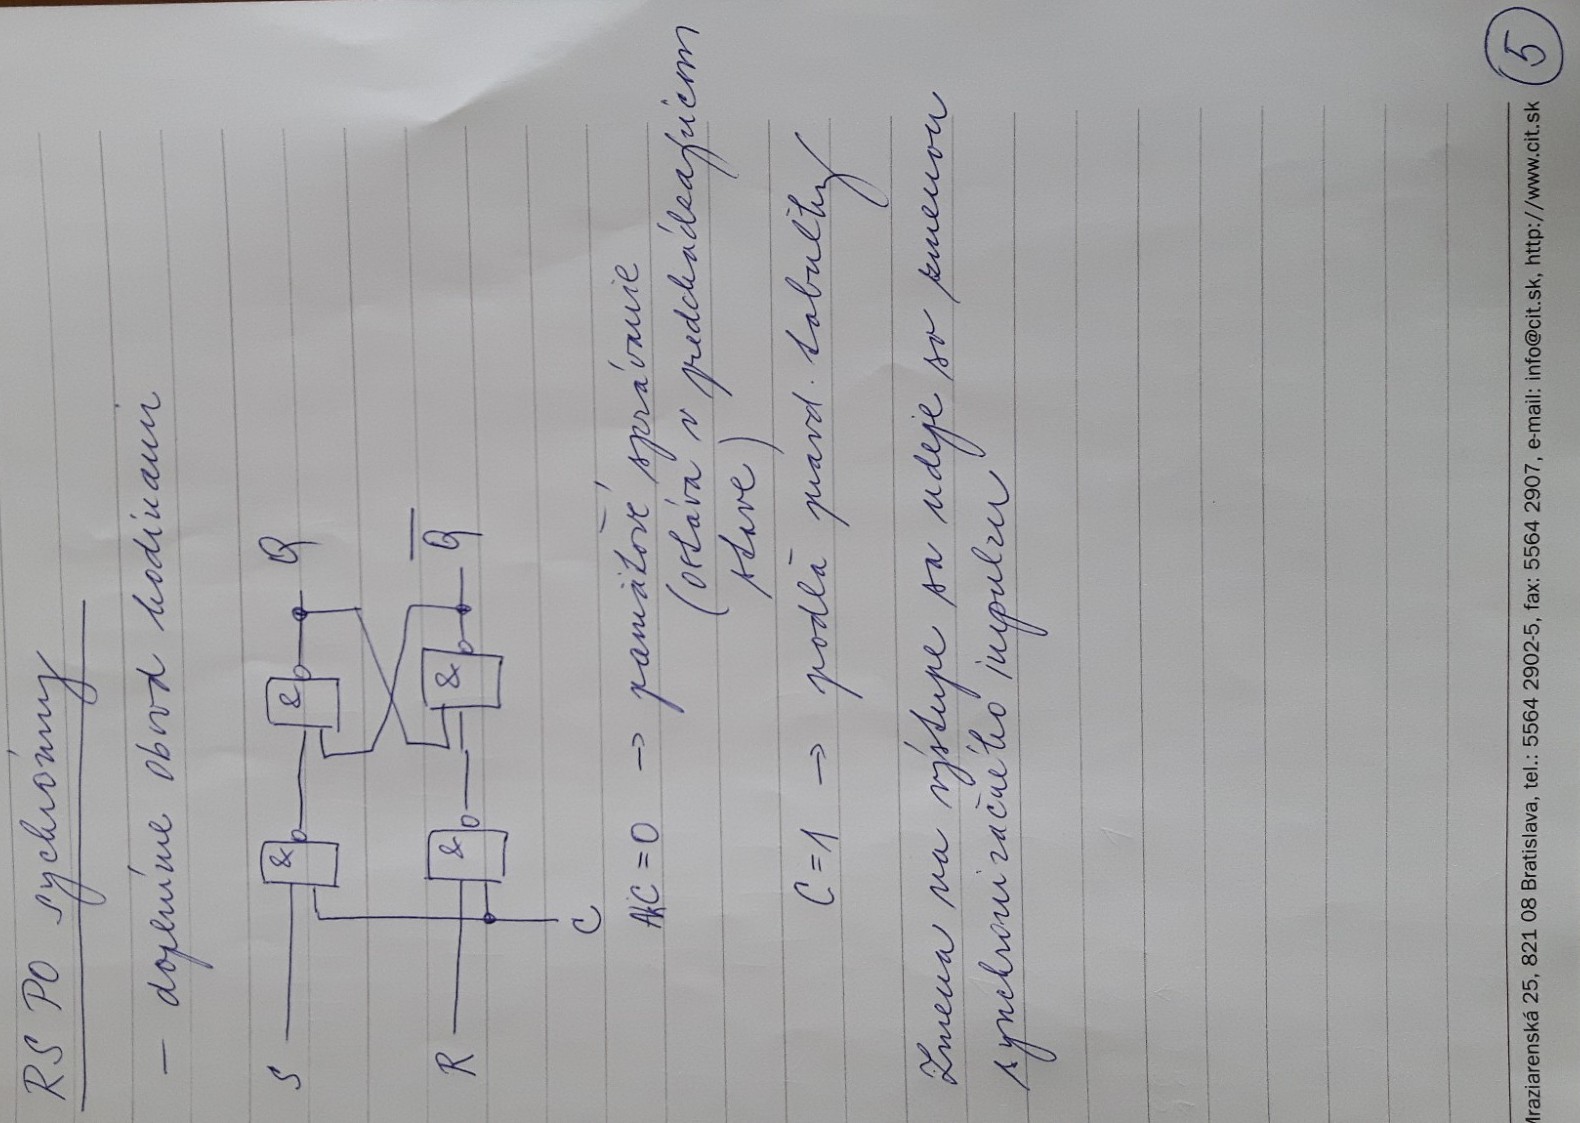 RS PO sychrónny
— doplníme obvod hodinami
S & & Q
R & & Q̅
C
Ak C = 0 → pamäťové správanie
(ostáva v predchádzajúcom
stave)
C = 1 → podľa pravd. tabuľky
Zmena na výstupe sa udeje so zmenou
synchronizačného impulzu
Mraziarenská 25, 821 08 Bratislava, tel.: 5564 2902-5, fax: 5564 2907, e-mail: info@cit.sk, http://www.cit.sk
5